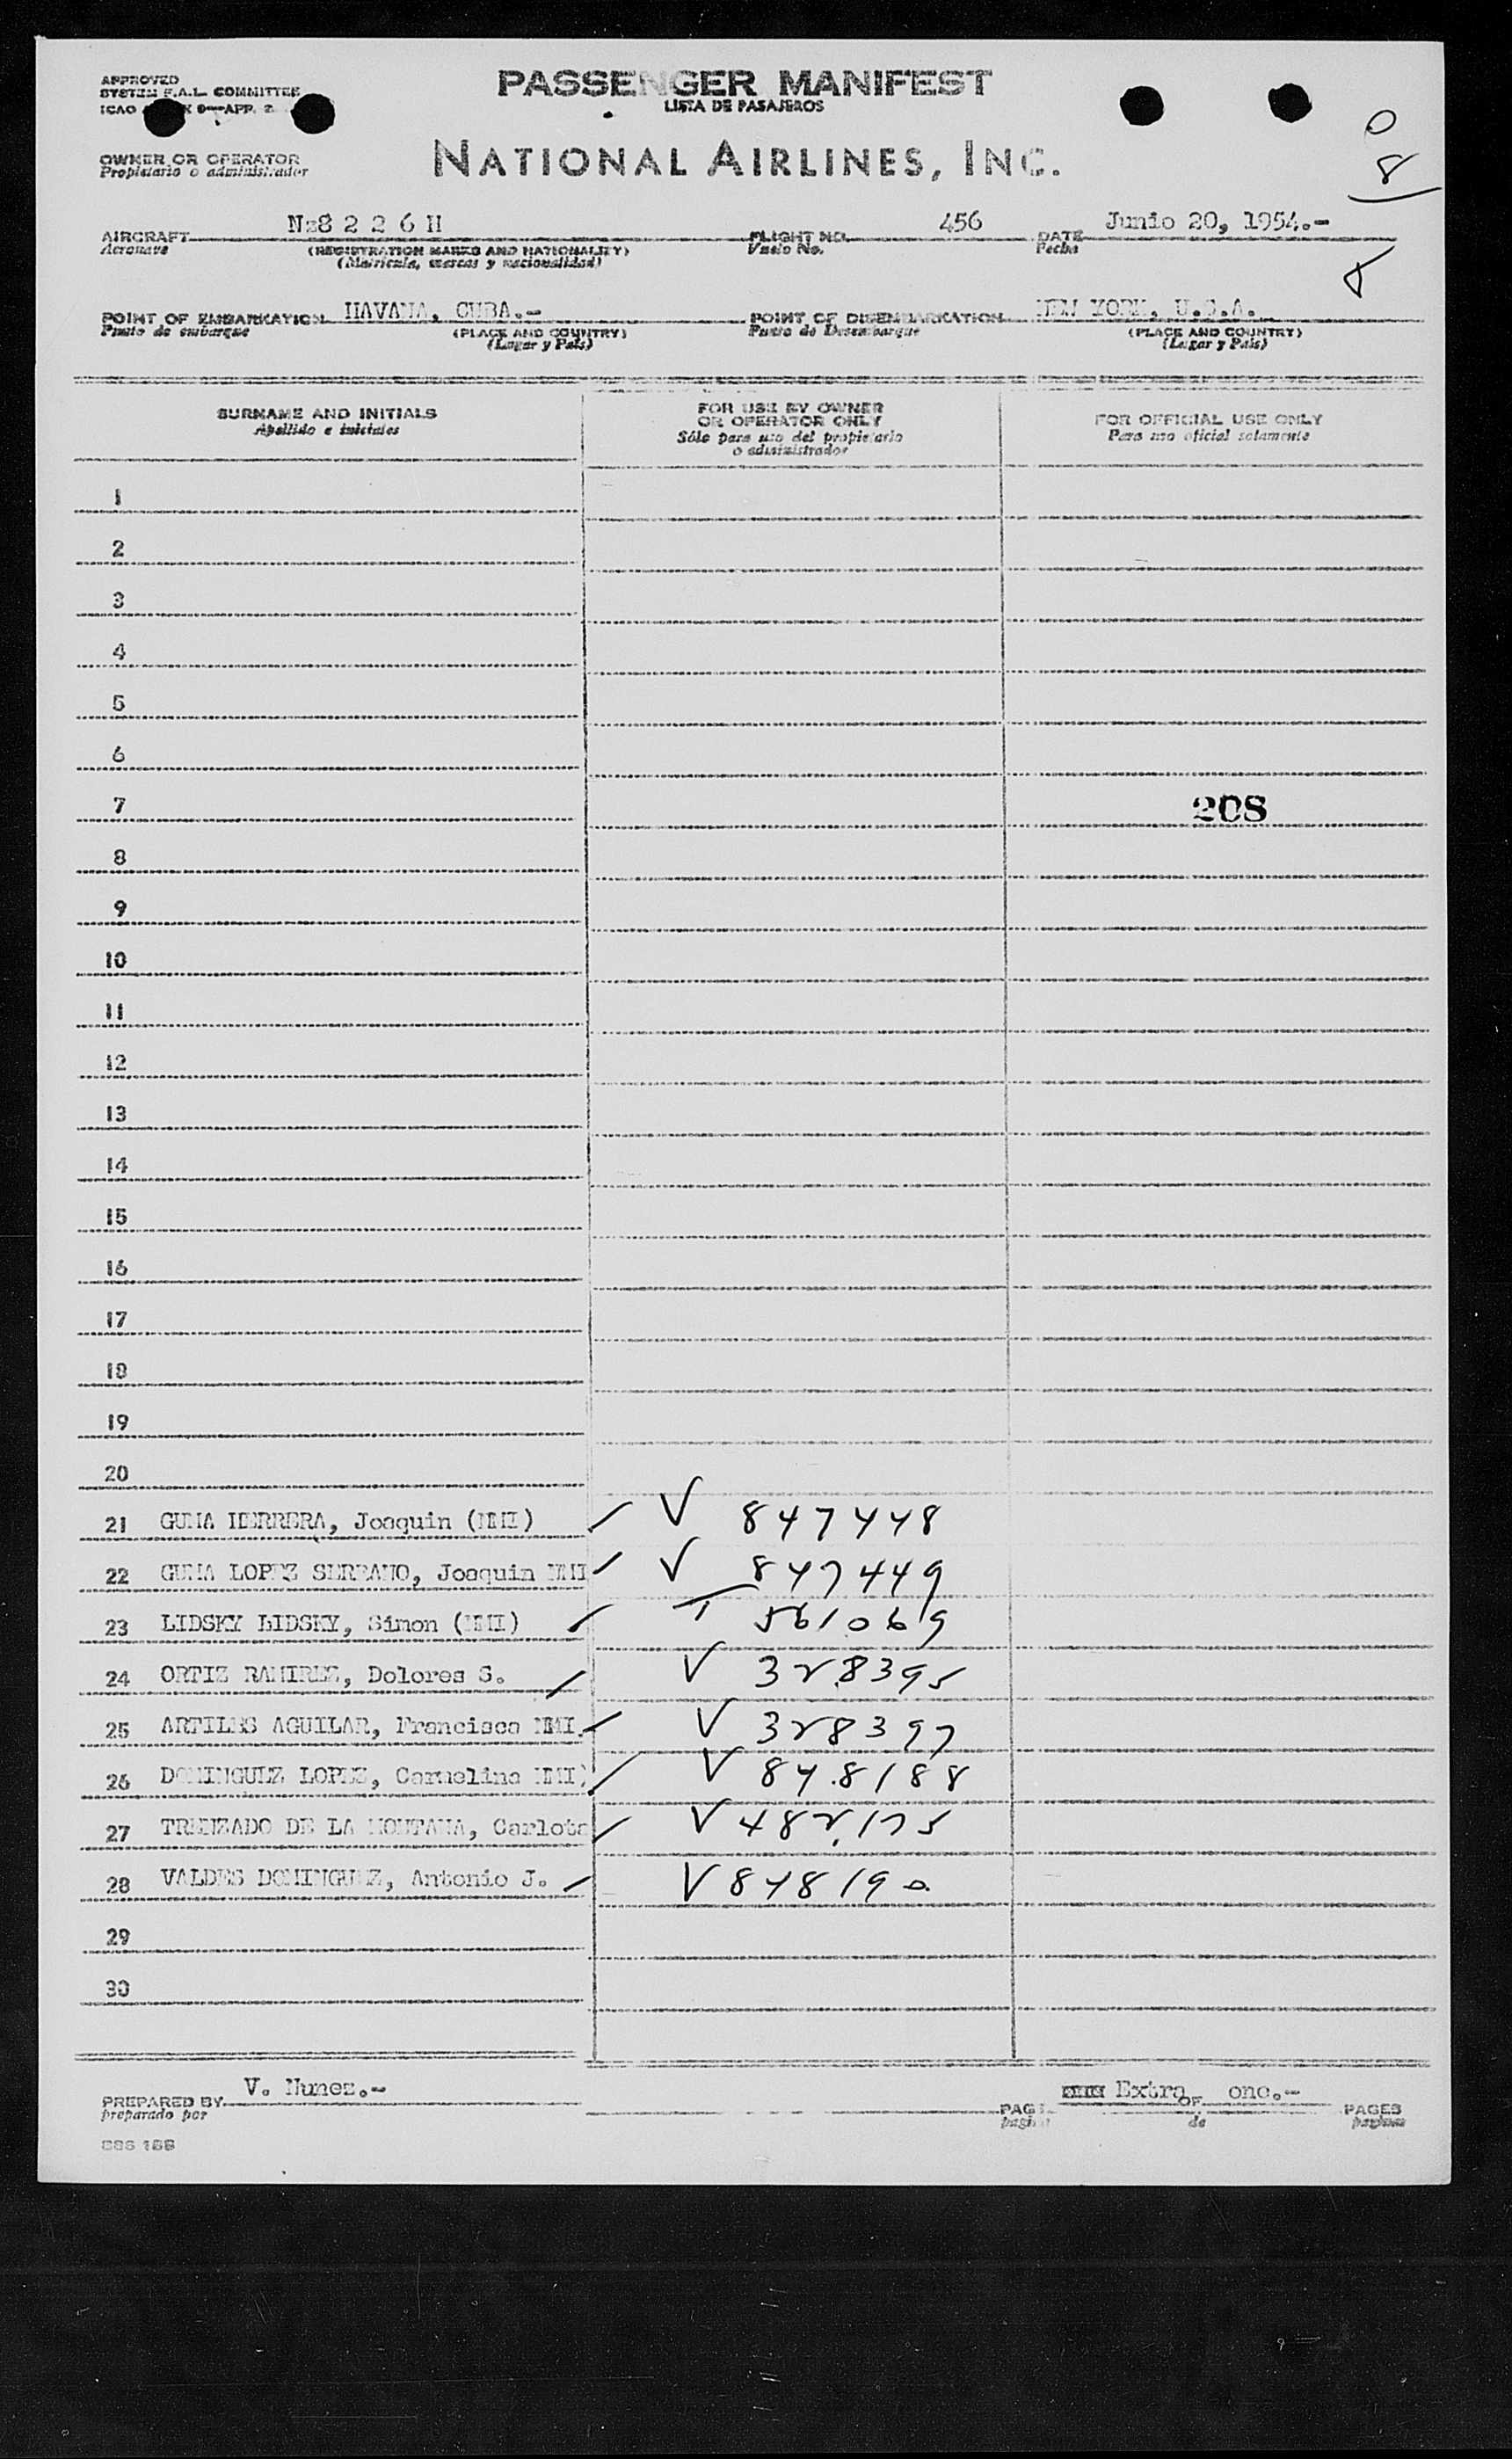 APPROVED
SYSTEM F.A.L. COMMITTEE
ICAO 9—APP. 2
PASSENGER MANIFEST
LISTA DE PASAJEROS
0
8
OWNER OR OPERATOR
Propietario o administrador
NATIONAL AIRLINES, INC.
AIRCRAFT N=8 2 2 6 H FLIGHT NO. 456 DATE Junio 20, 1954.-
Aeronave (REGISTRATION MARKS AND NATIONALITY) Vuelo No. Fecha
(Matricula, marcas y nacionalidad)
POINT OF EMBARKATION HAVANA, CUBA.- POINT OF DISEMBARKATION NEW YORK, U.S.A.
Punto de embarque (PLACE AND COUNTRY) Punto de Desembarque (PLACE AND COUNTRY)
(Lugar y País) (Lugar y País)
SURNAME AND INITIALS
Apellido e iniciales
FOR USE BY OWNER
OR OPERATOR ONLY
Sólo para uso del propietario
o administrador
FOR OFFICIAL USE ONLY
Para uso oficial solamente
1
2
3
4
5
6
7 208
8
9
10
11
12
13
14
15
16
17
18
19
20
21 GUMA HERRERA, Joaquin (NMI) ✓ V 847448
22 GUMA LOPEZ SERRANO, Joaquin NMI ✓ V 847449
23 LIDSKY LIDSKY, Simon (NMI) ✓ T 561069
24 ORTIZ RAMIREZ, Dolores S. ✓ V 328395
25 ARTILES AGUILAR, Francisca NMI. ✓ V 328397
26 DOMINGUEZ LOPEZ, Carmelina NMI) ✓ V 848188
27 TRENZADO DE LA MONTANA, Carlota ✓ V 482175
28 VALDES DOMINGUEZ, Antonio J. ✓ V 848190
29
30
PREPARED BY V. Nunez.-
preparado por
PAGE Extra OF one.- PAGES
pagina de paginas